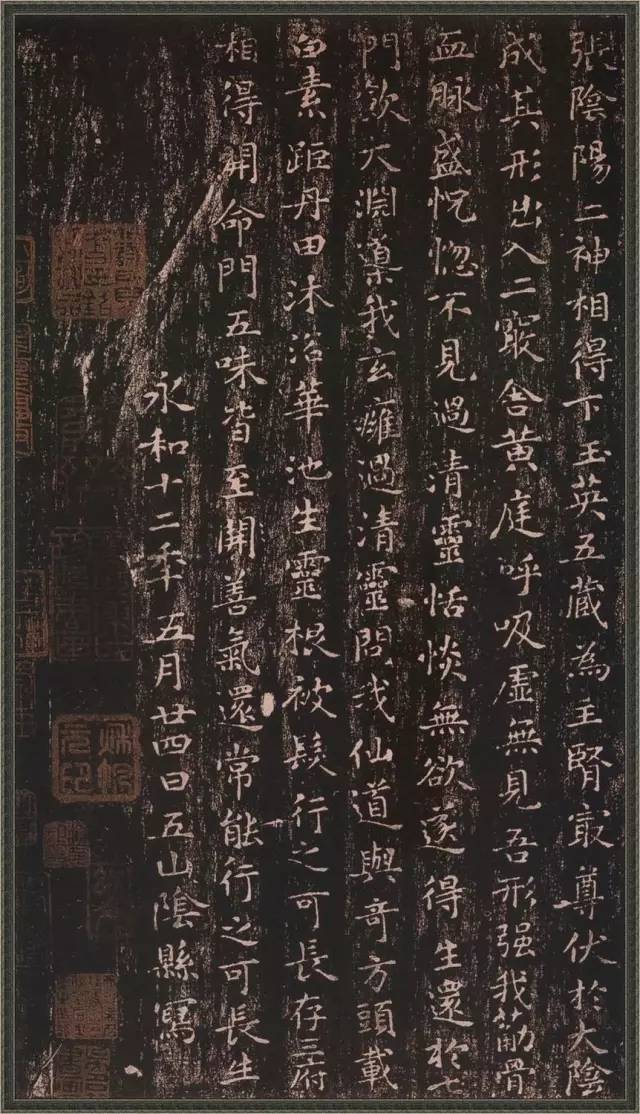 張陰陽二神相得下玉英五藏為主腎㝡尊伏於大陰
成其形出入二竅舍黄庭呼吸虛無見吾形强我荕骨
血脉盛恍惚不見過清靈恬惔無欲遂得生還於七
門飲大淵䆃我玄癰過清靈問我仙道與奇方頭載
白素距丹田沐浴華池生靈根被髮行之可長存三府
相得開命門五味皆至開善氣還常能行之可長生
永和十二年五月廿四日五山陰縣寫